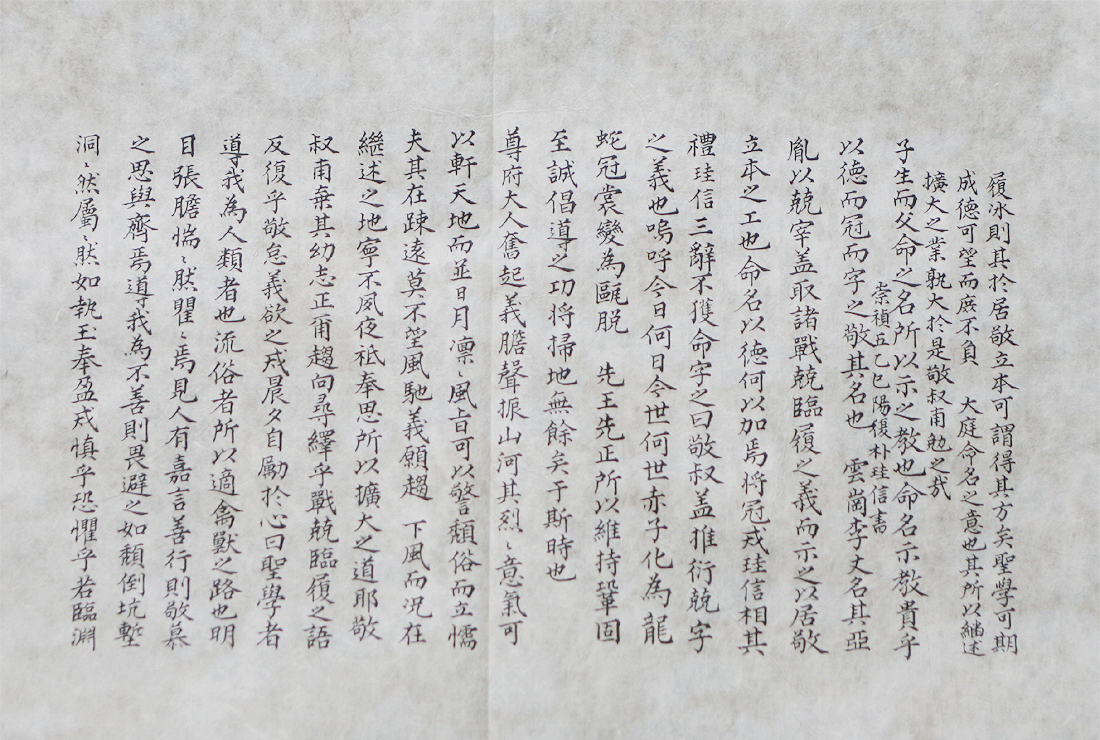 子生而父命之名所以示之教也命名示教貴乎
以德而冠而字之敬其名也 雲崗李丈名其亞
胤以兢宰盖取諸戰兢臨履之義而示之以居敬
立本之工也命名以德何以加焉將冠戒珪信相其
禮珪信三辭不獲命字之曰敬叔盖推衍兢字
之義也嗚呼今日何日今世何世赤子化為龍
蛇冠裳變為甌脫 先王先正所以維持鞏固
至誠倡導之功将掃地無餘矣于斯時也
尊府大人奮起義膽聲振山河其烈〻意氣可
以軒天地而並日月凛〻風旨可以警頹俗而立懦
夫其在踈遠莫不望風馳義願趨 下風而况在
繼述之地寧不夙夜祗奉思所以擴大之道耶敬
叔甫棄其幼志正甭趨向尋繹乎戰兢臨履之語
反復乎敬怠義欲之戒晨夕自勵於心曰聖學者
導我為人類者也流俗者所以適禽獸之路也明
目張膽惴〻然瞿〻焉見人有嘉言善行則敬慕
之思與齊焉導我為不善則畏避之如頹倒坑塹
洞〻然屬〻然如執玉奉盈戒慎乎恐懼乎若臨淵
履冰則其於居敬立本可謂得其方矣聖學可期
成德可望而庶不負 大庭命名之意也其所以繼述
擴大之業孰大於是敬叔甫勉之哉
崇禎五乙巳陽復朴珪信書